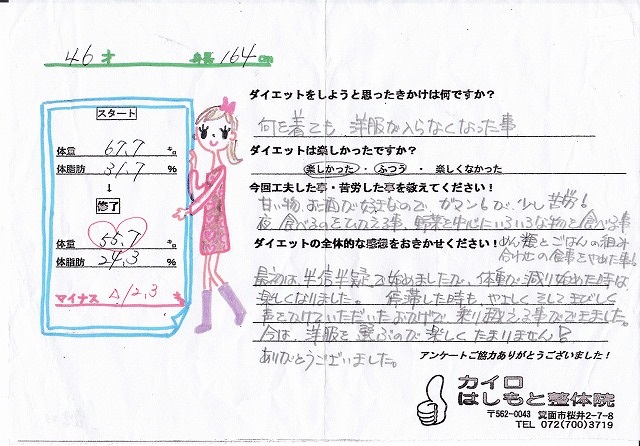 46才 身長164cm
ダイエットをしようと思ったきかけは何ですか？
何を着ても、洋服が入らなくなった事
ダイエットは楽しかったですか？
楽しかった・ふつう・楽しくなかった
今回工夫した事・苦労した事を教えてください！
甘い物、お酒が好きなので、ガマンしたが、少し苦労！
夜、食べるのをひかえる事、野菜を中心にいろいろな物を食べる事
めん類とごはんの組み
合わせの食事をやめた事！
ダイエットの全体的な感想をおきかせください！
最初は、半信半疑で始めましたが、体重が減り始めた時は、
楽しくなりました。 停滞した時も、やさしく そして きびしく
声をかけていただいたおかげで、乗り越える事ができました。
今は、洋服を選ぶので楽しくたまりません！
ありがとうございました。
スタート
体重 67.7 キロ
体脂肪 31.7 %
↓
終了
体重 55.7 キロ
体脂肪 24.3 %
マイナス △12.3
アンケートご協力ありがとうございました！
カイロ
はしもと整体院
〒562-0043 箕面市桜井2-7-8
TEL 072(700)3719